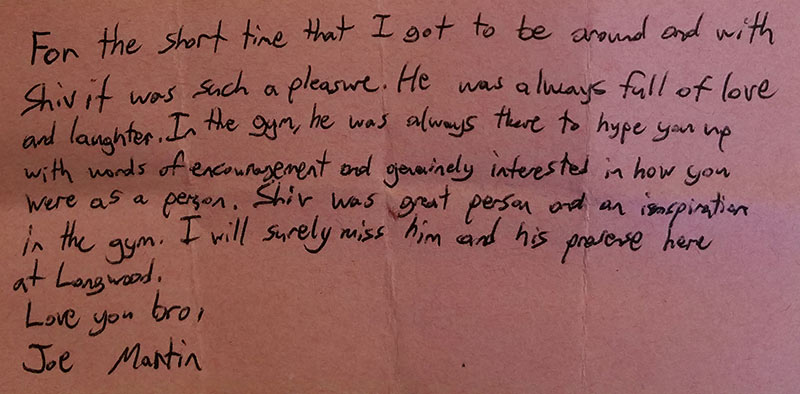 For the short time that I got to be around and with
Shiv it was such a pleasure. He was always full of love
and laughter. In the gym, he was always there to hype you up
with words of encouragement and genuinely interested in how you
were as a person. Shiv was great person and an inspiration
in the gym. I will surely miss him and his presence here
at Longwood.
Love you bro,
Joe Martin